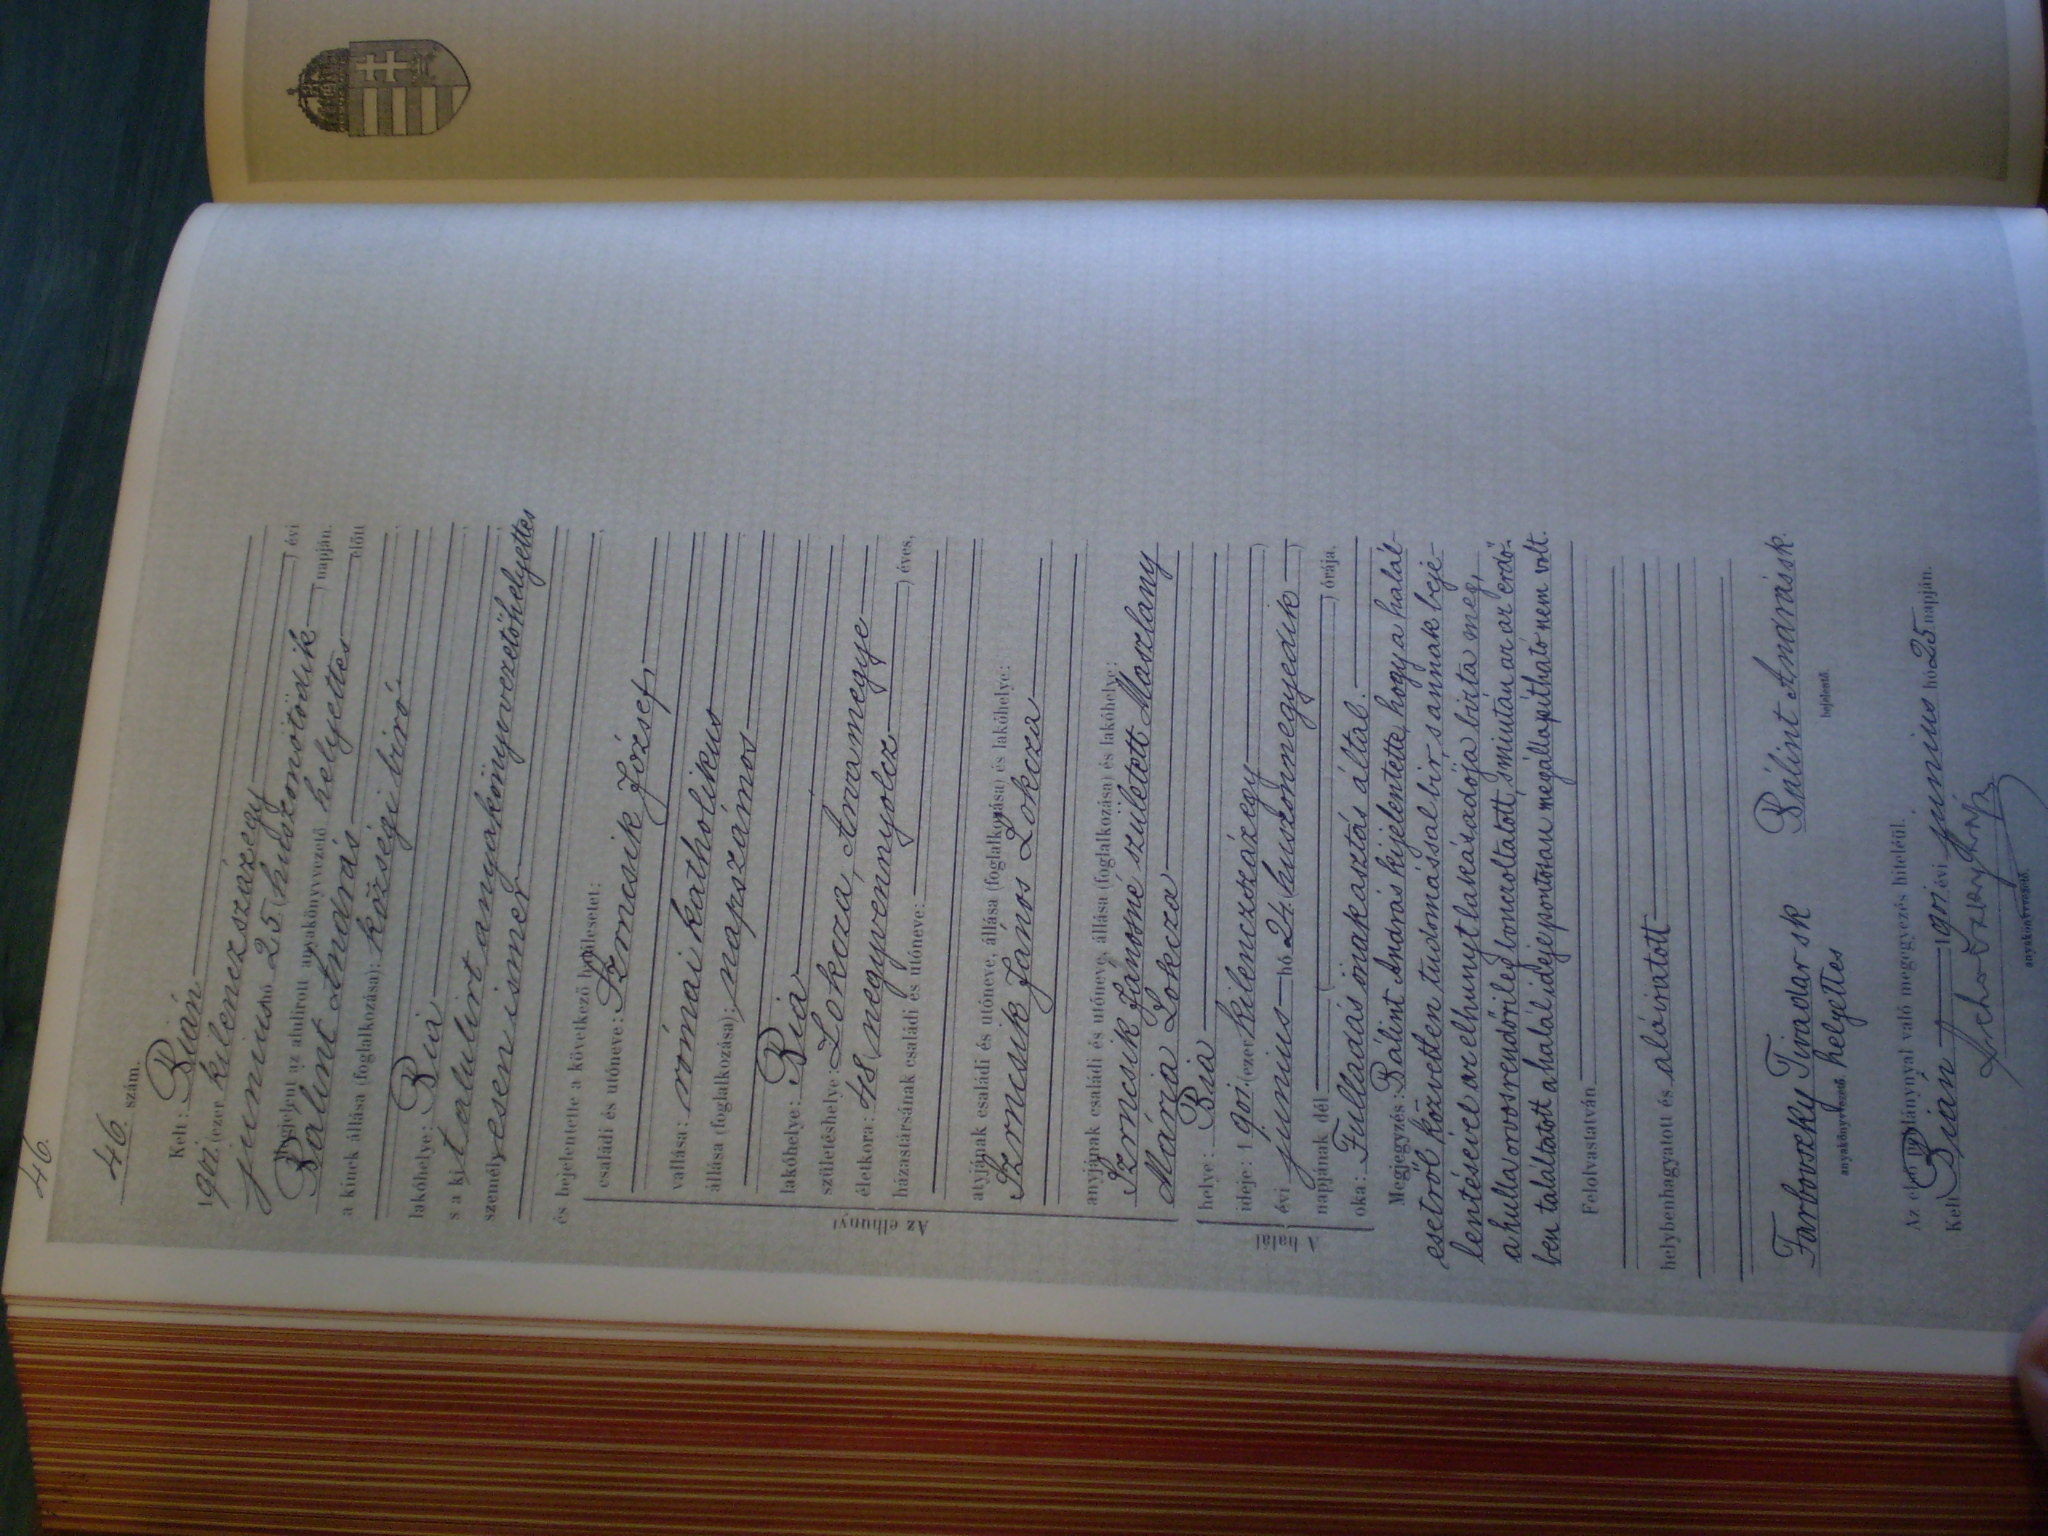 46.
46. szám.
Kelt: Bián
1901. (ezer kilenczszázegy) évi
junius hó 25 (huszonötödik) napján.
Megjelent az alulirott anyakönyvvezető helyettes előtt
Bálint András
a kinek állása (foglalkozása): községi biró
lakóhelye: Bia
s a kit alulirt anyakönyvvezetőhelyettes
személyesen ismer
és bejelentette a következő halálesetet:
Az elhunyt
családi és utóneve: Szrncsik József
vallása: római katholikus
állása (foglalkozása): napszámos
lakóhelye: Bia
születéshelye: Lokcza, Árvamegye
életkora: 48 (negyvennyolcz) éves,
házastársának családi és utóneve:
atyjának családi és utóneve, állása (foglalkozása) és lakóhelye:
Szrncsik János Lokcza
anyjának családi és utóneve, állása (foglalkozása) és lakóhelye:
Szrncsik Jánosné született Moszlany
Mária Lokcza
A halál
helye: Bia
ideje: 1901. (ezer kilenczszázegy)
évi junius hó 24. (huszonnegyedik)
napjának dél ( ) órája.
oka: Fulladás önakasztás által.
Megjegyzés: Bálint András kijelentette, hogy a halál-
esetről közvetlen tudomással bir s annak beje-
lentésével az elhunyt lakásadója bizta meg,
a hulla orvosrendőrileg bonczoltatott, s miután az az erdő-
ben találtatott a halál ideje pontosan megállapítható nem volt.
Felolvastatván
helybenhagyatott és aláiratott
Farbovszky Tivadar sk Bálint András sk.
anyakönyvvezető. helyettes bejelentő.
Az első példánnyal való megegyezés hiteléül.
Kelt Bián 1901 évi junius hó 25 napján.
anyakönyvvezető.